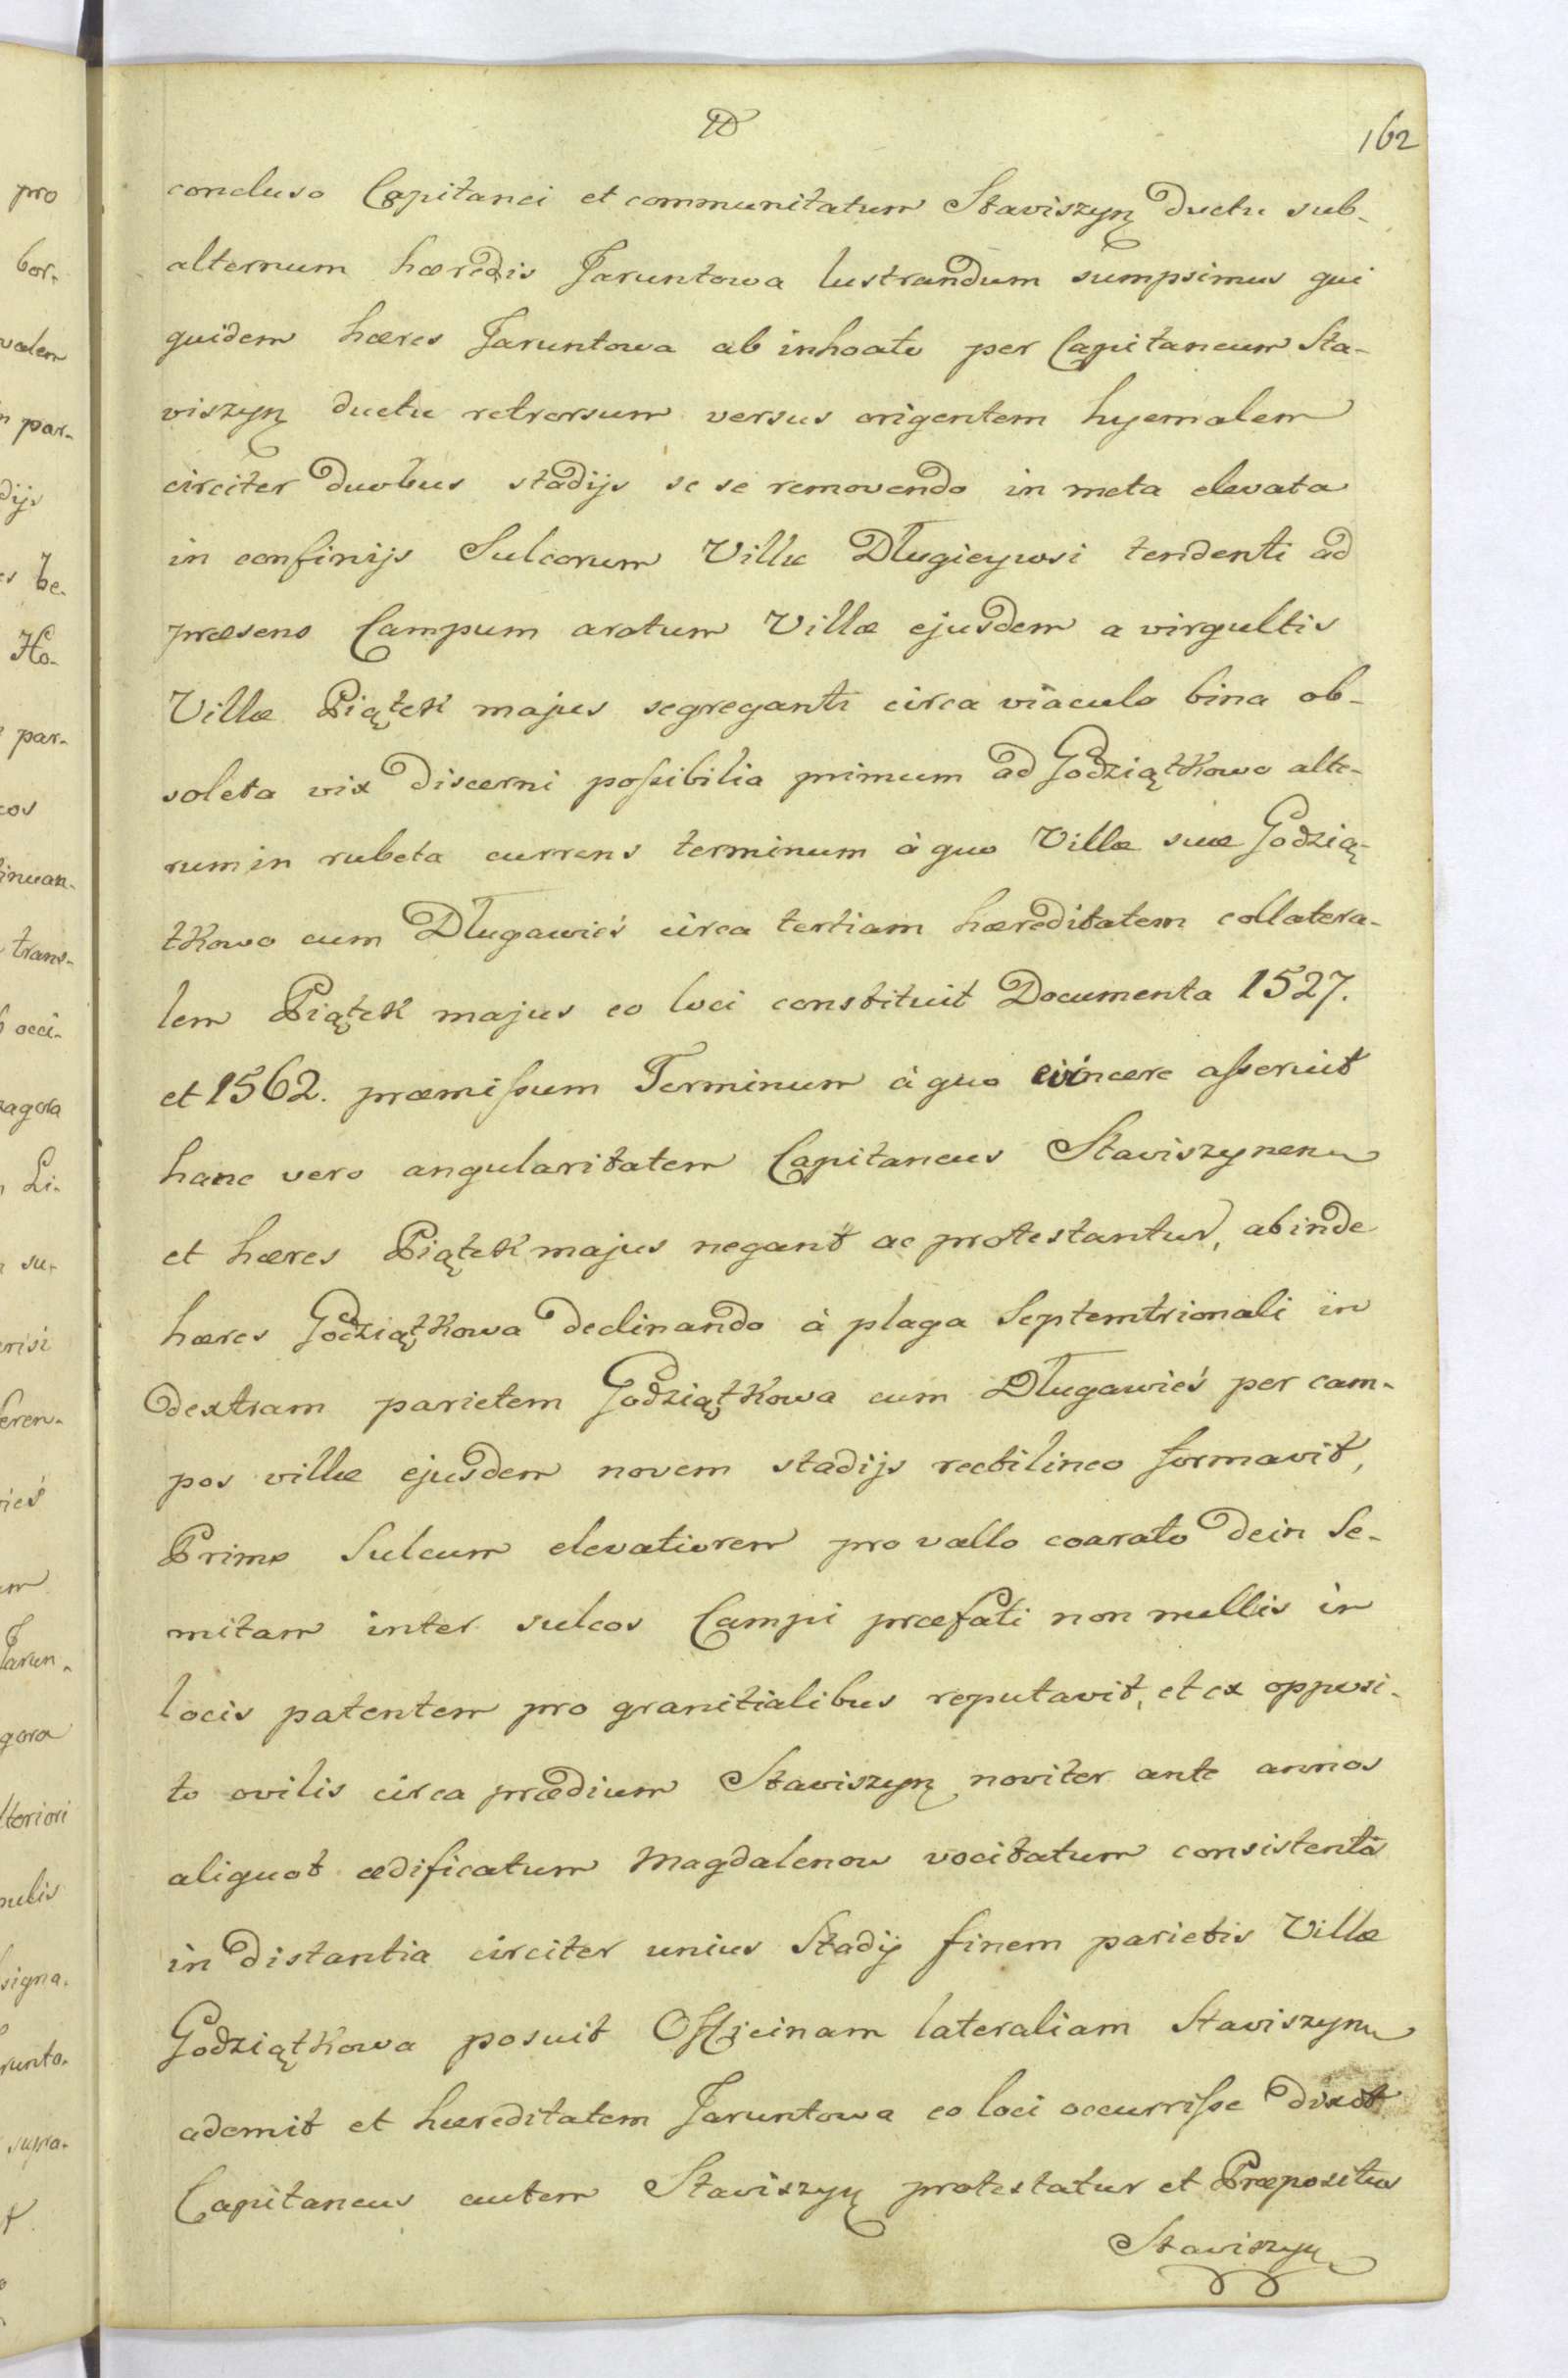 162
concluso Capitanei et communitatum Staviszyn ductu sub-
alternum hæredis Jaruntowa lustrandum sumpsimus qui
quidem hæres Jaruntowa ab inhoato per Capitaneum Sta-
viszyn ductu retrorsum versus origentem hyemalem
circiter duobus stadijs se se removendo in meta elevata
in confinijs Sulcorum Villæ Długieywsi tendenti ad
præsens Campum aratum Villæ ejusdem a virgultis
Villæ Piątek majus segreganti circa viacula bina ob-
soleta vix discerni possibilia primum ad Godziątkowo alte-
rum in rubeta currens terminum à quo Villæ suæ Godzią-
tkowo cum Długawieś circa tertiam hæreditatem collatera-
lem Piątek majus eo loci constituit Documenta 1527.
et 1562. præmissum Terminum à quo evincere asseruit
hanc vero angularitatem Capitaneus Staviszynen
et hæres Piątek majus negant ac protestantur, abinde
hæres Godziątkowa declinando à plaga Septemtrionali in
dextram parietem Godziątkowa cum Długawieś per cam-
pos villæ ejusdem novem stadijs rectilineo formavit,
Primo Sulcum elevatiorem pro vallo coarato dein Se-
mitam inter sulcos Campi præfati non nullis in
locis patentem pro granitialibus reputavit, et ex opposi-
to ovilis circa prædium Staviszyn noviter ante annos
aliquot ædificatum Magdalenow vocitatum consistentis
in distantia circiter unius Stadij finem parietis Villæ
Godziątkowa posuit Officinam lateraliam Staviszyn
ademit et hæreditatem Jaruntowa eo loci occurrisse dixit
Capitaneus autem Staviszyn protestatur et Præpositus
Staviszyn